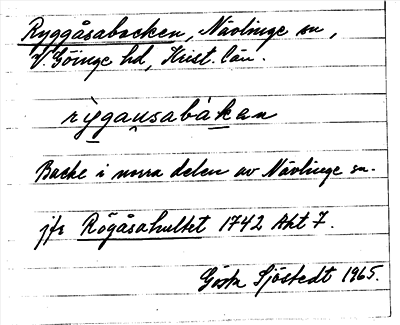 Ryggåsabacken, Nävlinge sn,
V. Göinge hd, Krist. län.
riggausabákan
Backe i norra delen av Nävlinge sn.
jfr Rögåsahultet 1742 Akt 7.
Gösta Sjöstedt 1965.